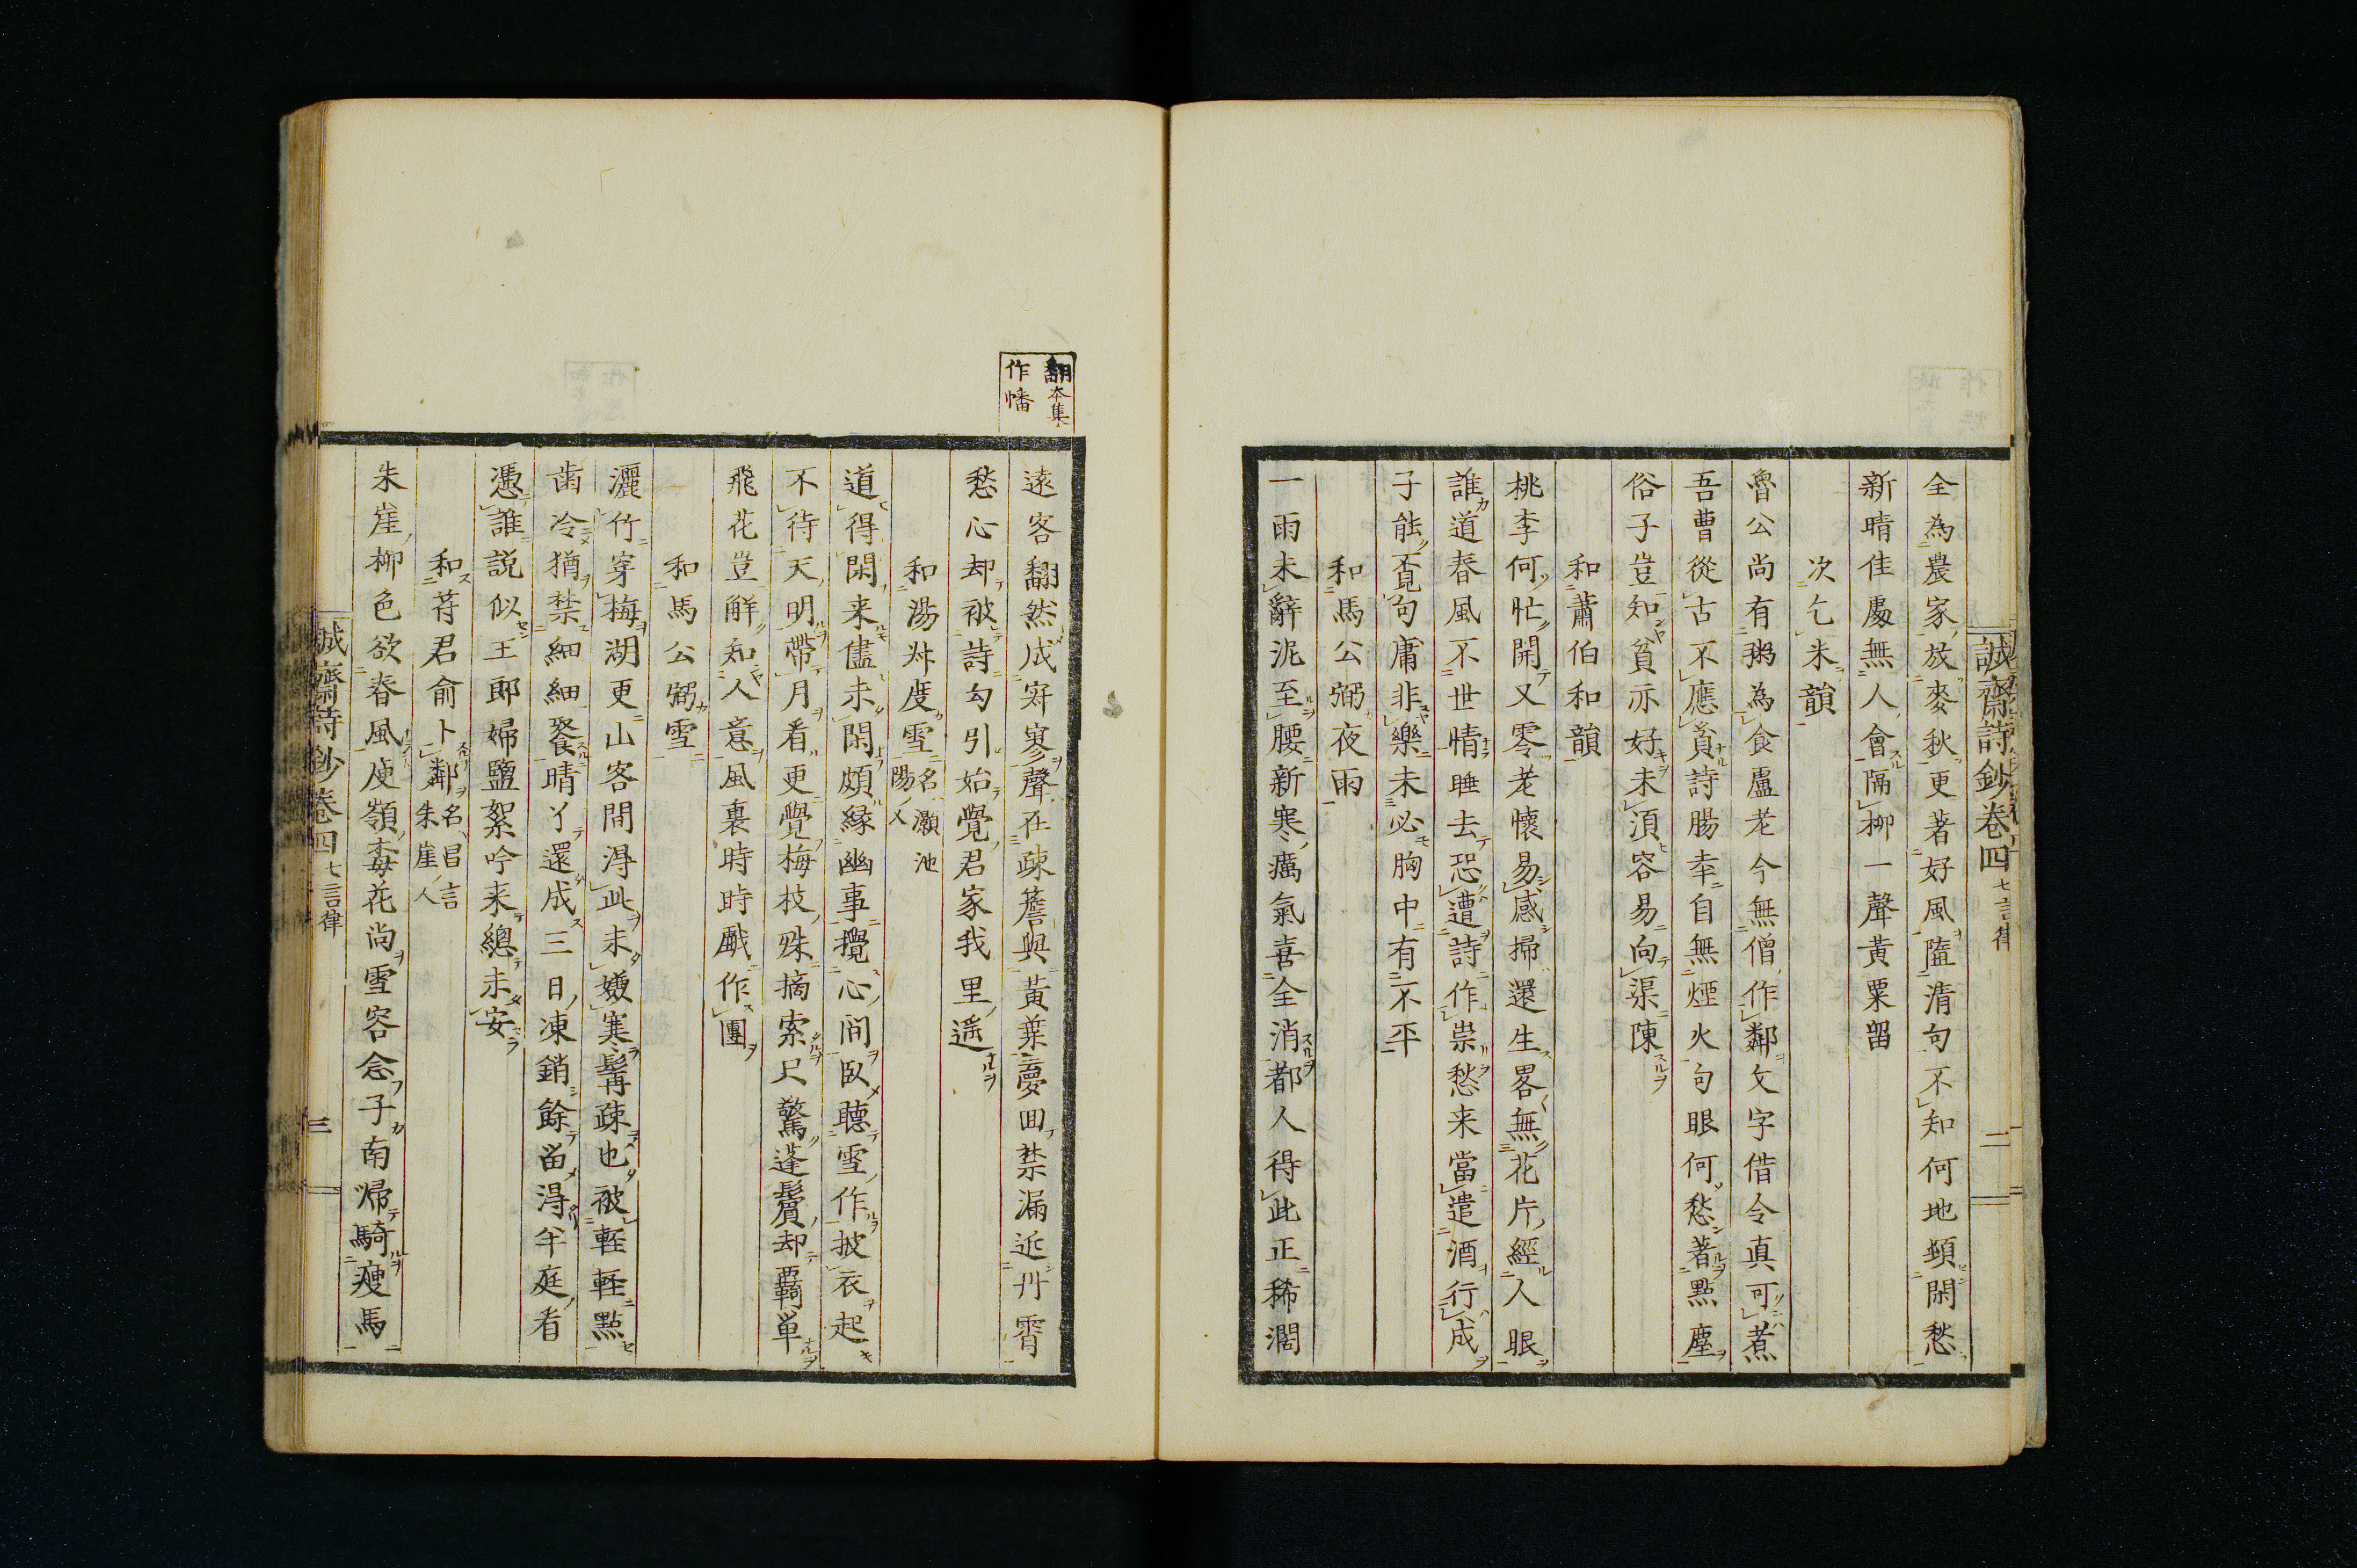 誠齋詩鈔卷四 七言律 二
全為農家放麥秋更著好風隨清句不知何地頓閑愁
新晴佳處無人會隔柳一聲黃栗留
次乞米韻
魯公尚有粥為食盧老今無僧作鄰文字借令真可煮
吾曹從古不應貧詩腸幸自無煙火句眼何愁著點塵
俗子豈知貧亦好未須容易向渠陳
和蕭伯和韻
桃李何忙開又零老懷易感掃還生畧無花片經人眼
誰道春風不世情睡去恐遭詩作祟愁来當遣酒行成
子能覔句庸非樂未必胸中有不平
和馬公弼夜雨
一雨未辭泥至腰新寒癘氣喜全消都人得此正稀濶
翻本集
作幡
遠客翻然成寂寥聲在疎簷與黃葉夢回禁漏近丹霄
愁心却被詩勾引始覺君家我里遥
和湯叔度雪 名灝池
陽人
道得閑来儘未閑頗緣幽事攪心間臥聽雪作披衣起
不待天明帶月看更覺梅枝殊摘索只驚蓬鬢却羇單
飛花豈解知人意風裏時時戲作團
和馬公弼雪
灑竹穿梅湖更山客間得此未嫌寒髯疎也被輕輕點
齒冷猶禁細細餐晴了還成三日凍銷餘留得半庭看
憑誰説似王郎婦鹽絮吟来總未安
和苻君俞卜鄰 名昌言
朱崖人
朱崖柳色欲春風庾嶺梅花尚雪容念子南歸騎瘦馬
誠齋詩鈔卷四 七言律 三